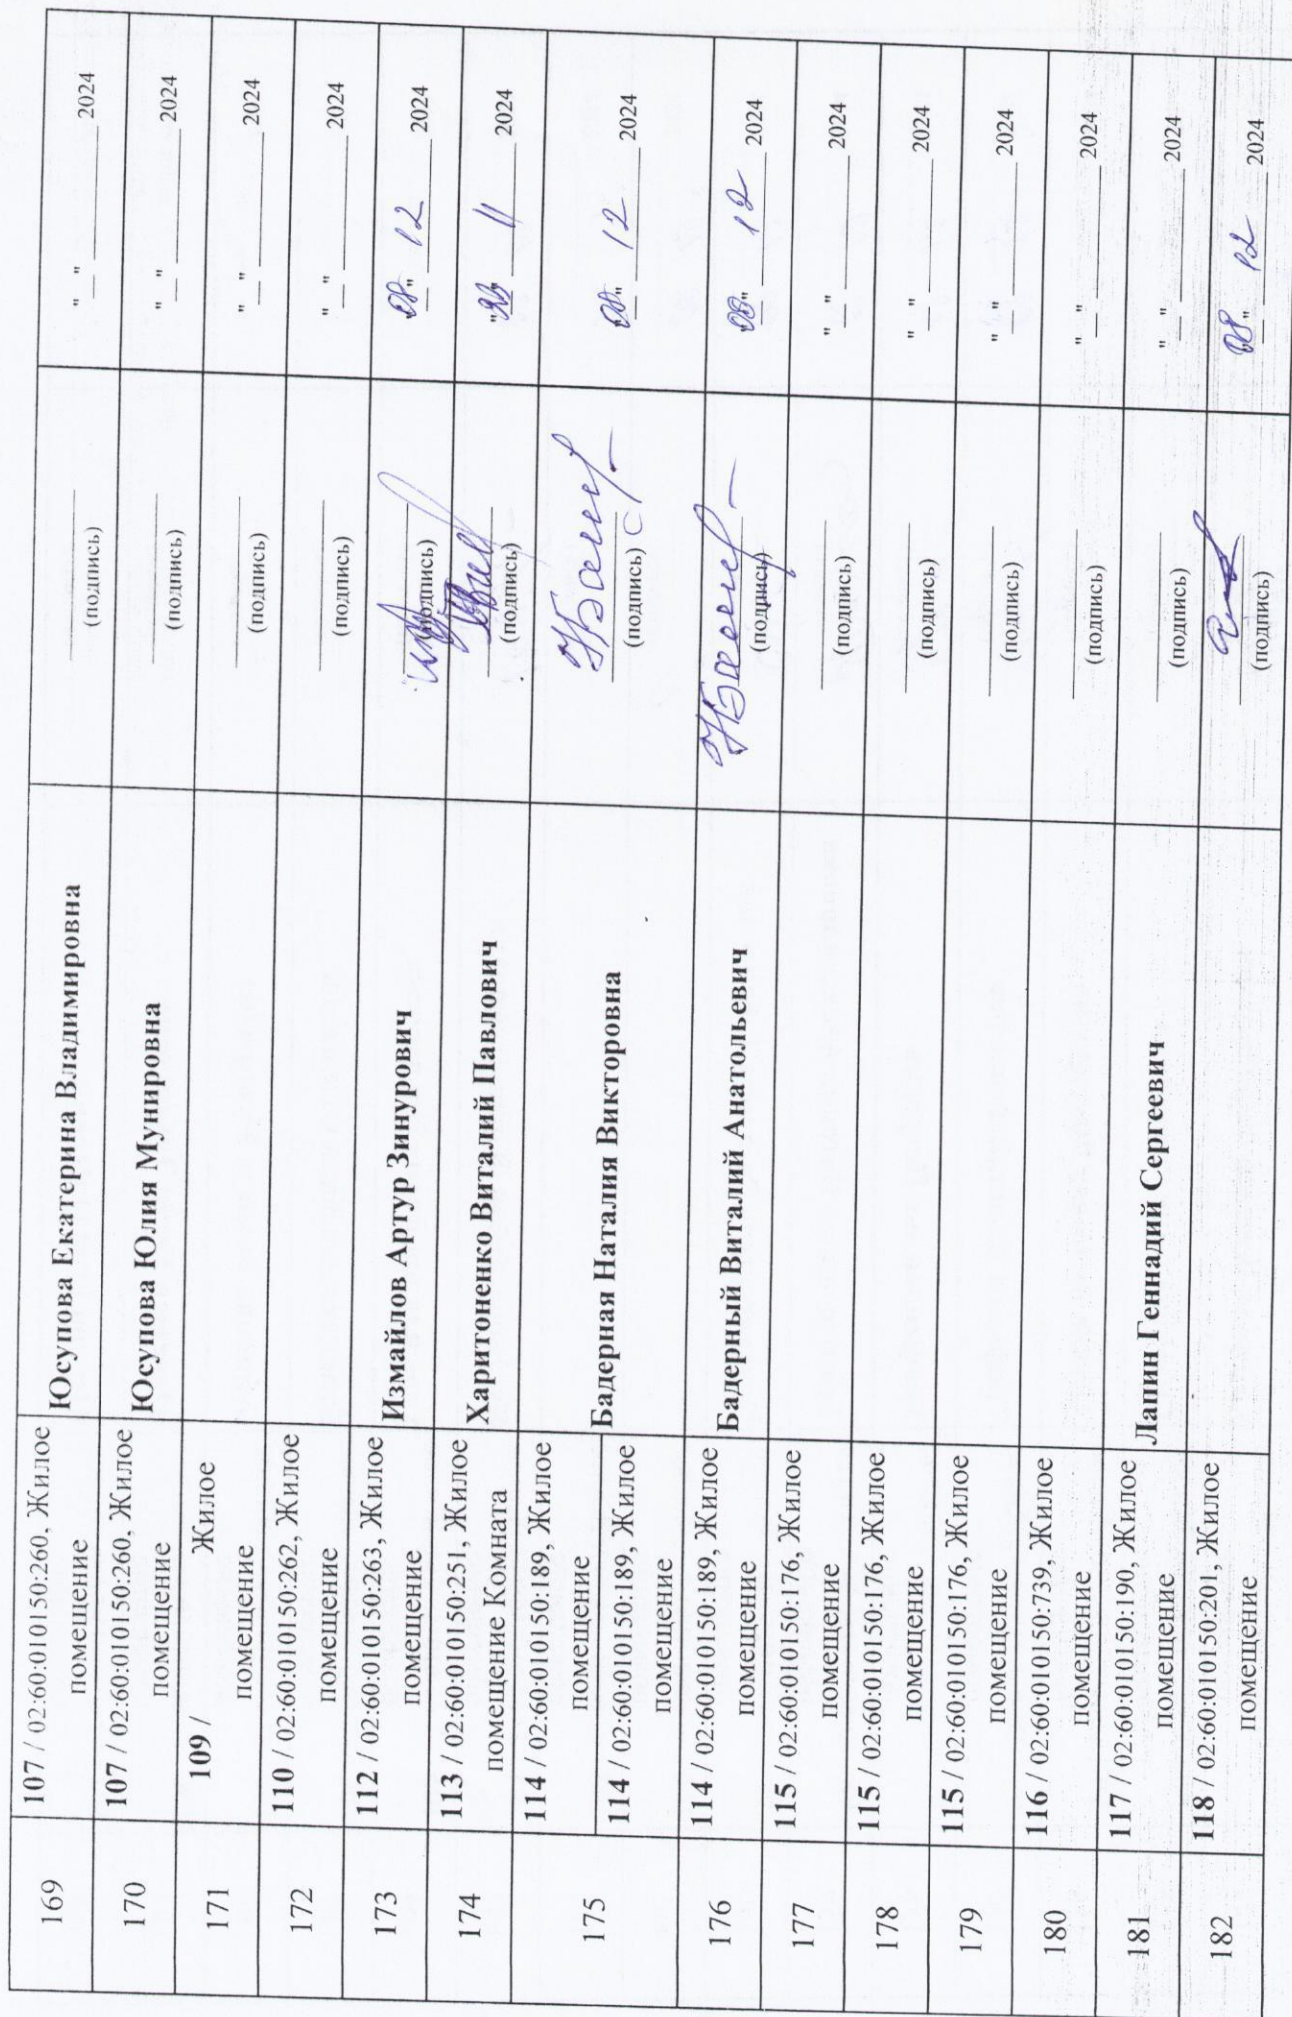 169 107 / 02:60:010150:260, Жилое помещение Юсупова Екатерина Владимировна (подпись) "__" ________ 2024
170 107 / 02:60:010150:260, Жилое помещение Юсупова Юлия Мунировна (подпись) "__" ________ 2024
171 109 / Жилое помещение (подпись) "__" ________ 2024
172 110 / 02:60:010150:262, Жилое помещение (подпись) "__" ________ 2024
173 112 / 02:60:010150:263, Жилое помещение Измайлов Артур Зинурович (подпись) "08" 12 2024
174 113 / 02:60:010150:251, Жилое помещение Комната Харитоненко Виталий Павлович (подпись) 11 2024
175 114 / 02:60:010150:189, Жилое помещение Бадерная Наталия Викторовна (подпись) "08" 12 2024
114 / 02:60:010150:189, Жилое помещение
176 114 / 02:60:010150:189, Жилое помещение Бадерный Виталий Анатольевич (подпись) "08" 12 2024
177 115 / 02:60:010150:176, Жилое помещение (подпись) "__" ________ 2024
178 115 / 02:60:010150:176, Жилое помещение (подпись) "__" ________ 2024
179 115 / 02:60:010150:176, Жилое помещение (подпись) "__" ________ 2024
180 116 / 02:60:010150:739, Жилое помещение (подпись) "__" ________ 2024
181 117 / 02:60:010150:190, Жилое помещение Лапин Геннадий Сергеевич (подпись) "__" ________ 2024
182 118 / 02:60:010150:201, Жилое помещение (подпись) "08" 12 2024